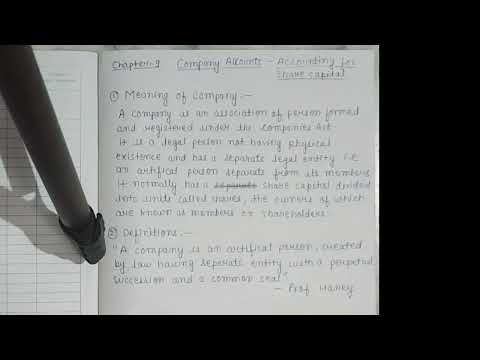 Chapter:-9 Company Accounts - Accounting for
Share capital
① Meaning of Company:-
A company is an association of person formed
and registered under the companies Act.
It is a legal person not having physical
existence and has a separate legal entity i.e
an artifical person separate from its members
It normally has a separate share capital divided
into units called shares, the owners of which
are known as members or shareholders.
② Definitions:-
"A company is an artifical person, created
by law having separate entity with a perpetual
succession and a common seal"
- Prof Haney